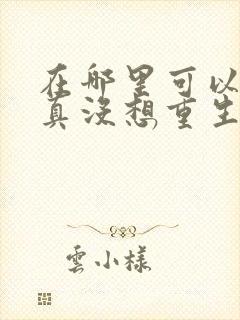 在哪里可以
真没想重生
雲小樣